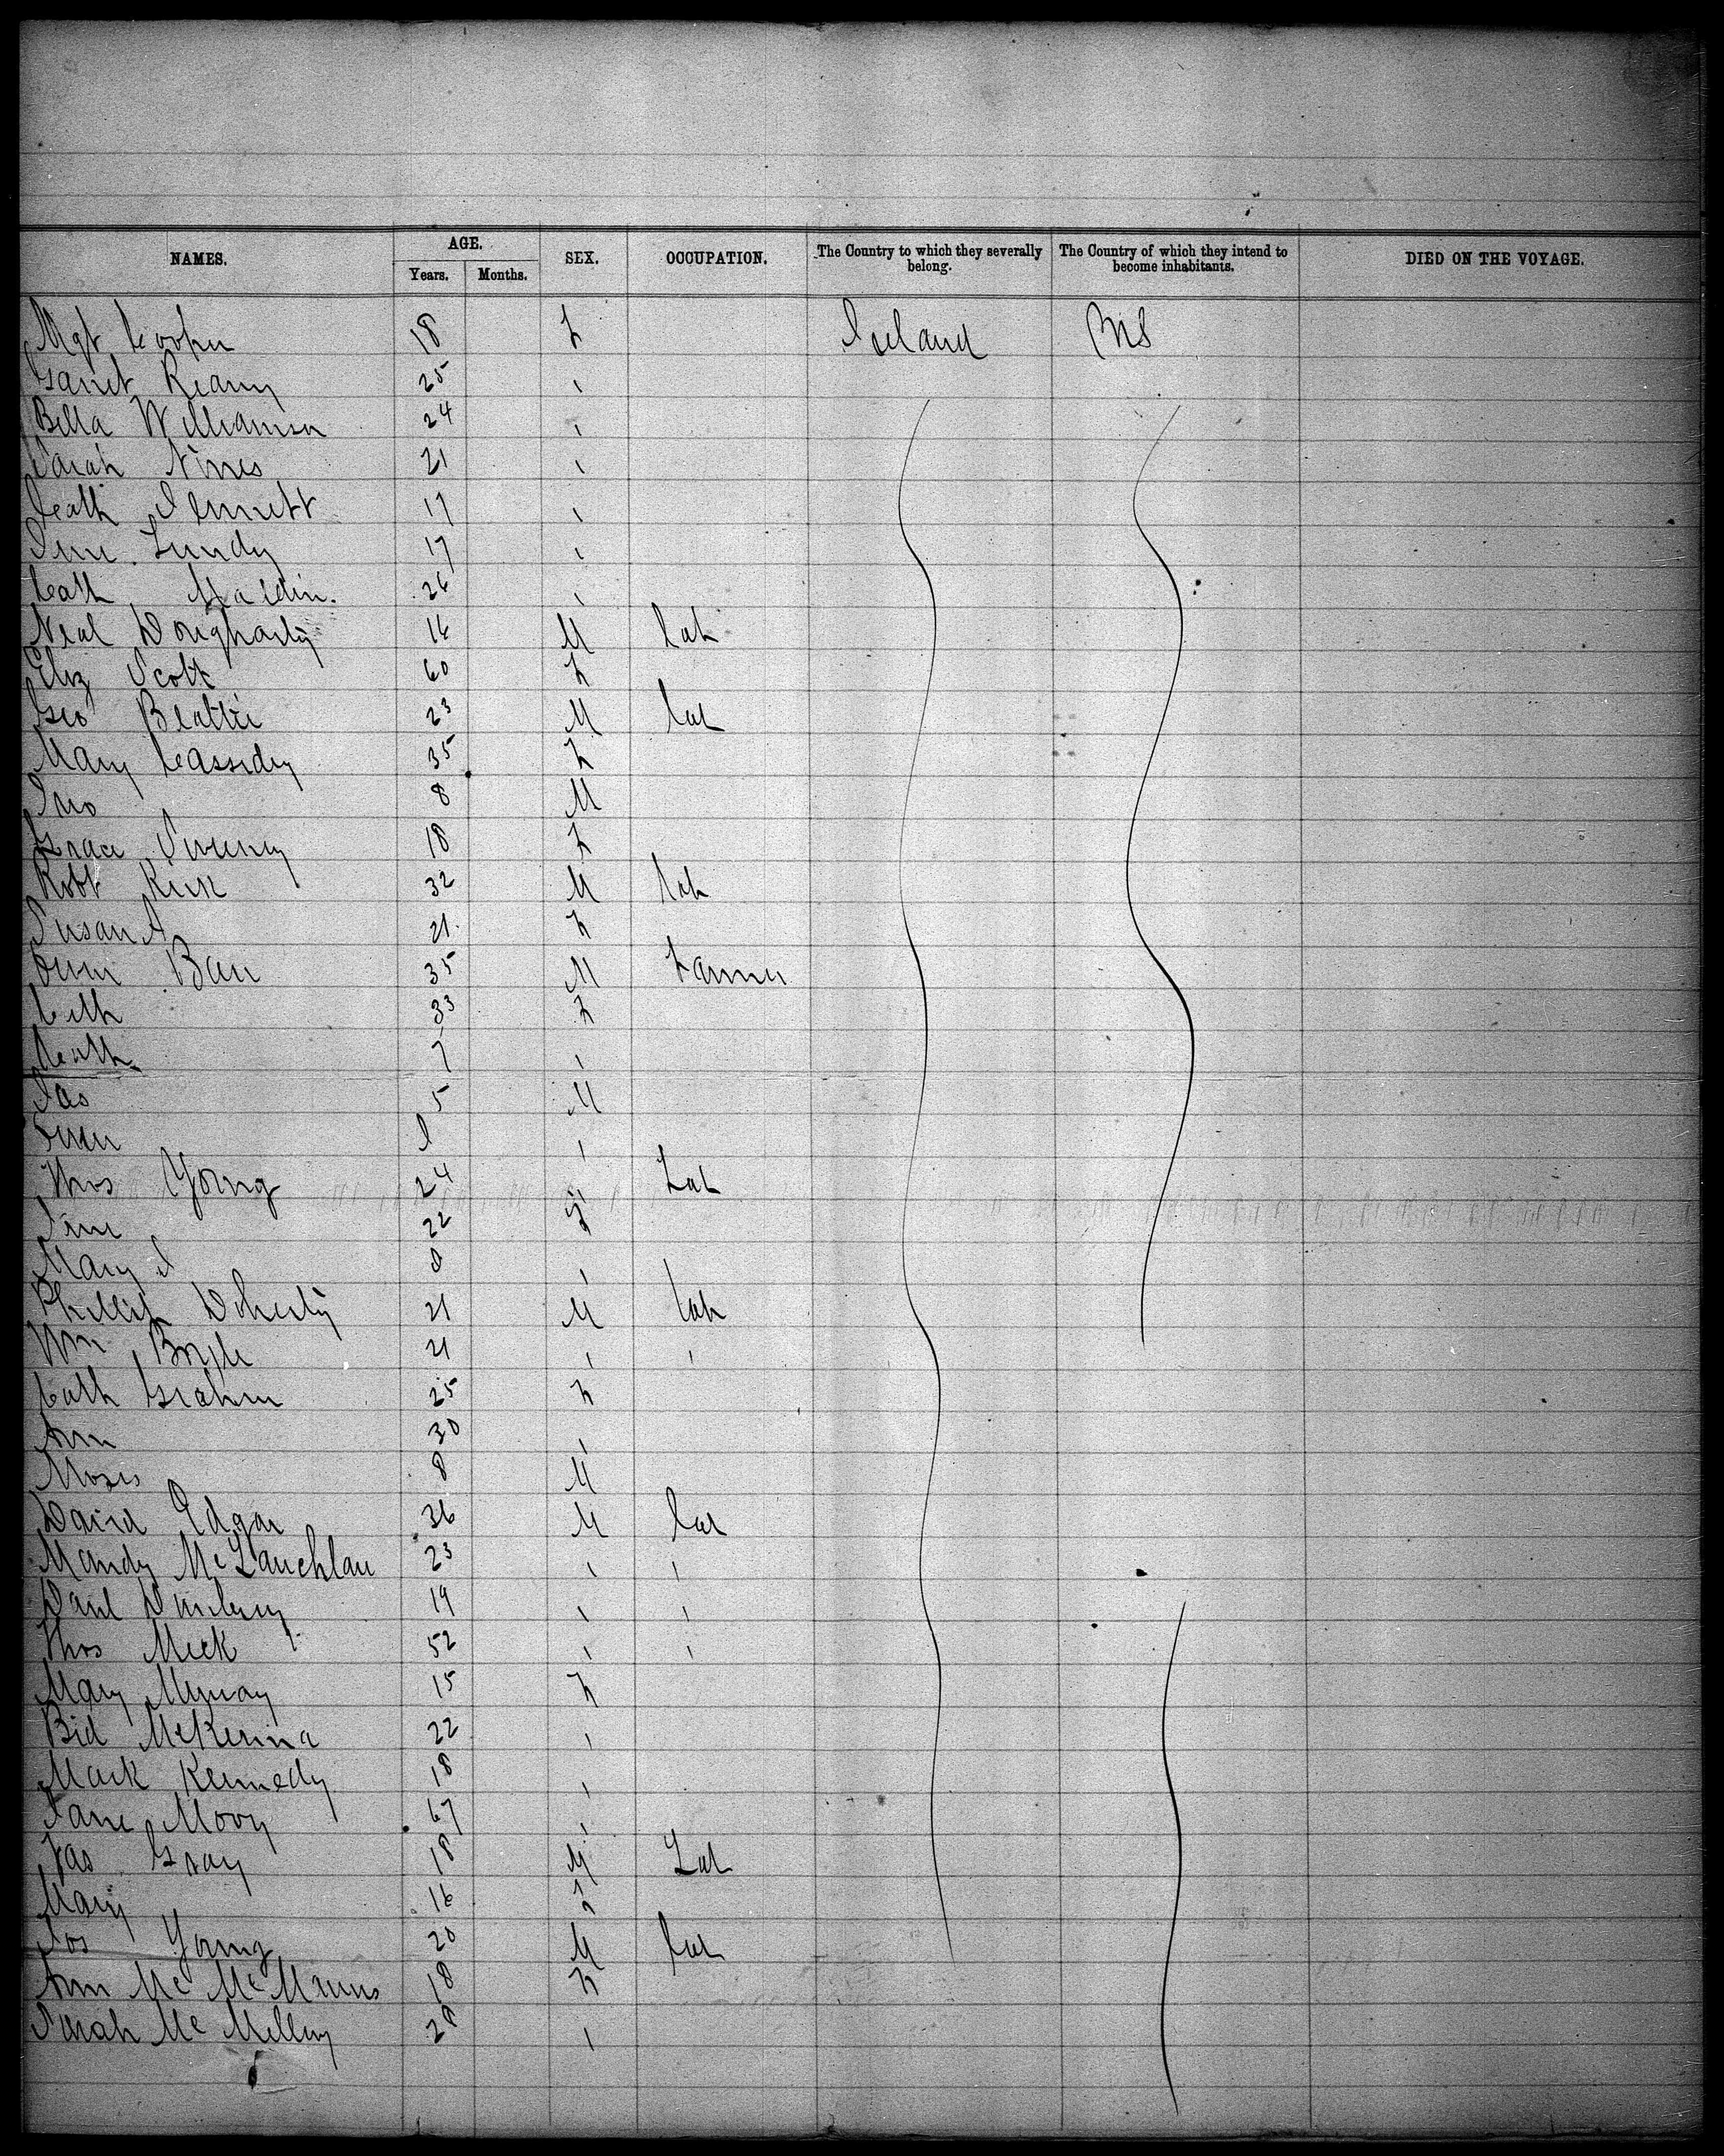 NAMES. AGE. Years. Months. SEX. OCCUPATION. The Country to which they severally belong. The Country of which they intend to become inhabitants. DIED ON THE VOYAGE.
Mgt Cooper 18 F Ireland US
25 "
Bella Williamson 24 "
Sarah 21 "
Cath 17 "
Lundy 17 "
Cath 26 "
Neal Dougharty 16 M Lab
Eliz Scott 60 F
Geo Beattie 23 M Lab
Mary Cassidy 35 F
Jno 8 M
Grace Sweeney 18 F
Robt Kirk 32 M Lab
Susan A 21 F
Owen Barr 35 M Farmer
Cath 33 F
Cath 7 "
Jas 5 M
Owen "
Thos Young 24 " Lab
Jane 22 F
Mary J 8 "
Phillip Doherty 21 M Lab
Wm Boyle 21 " "
Cath Graham 25 F
Ann 30 "
Moses 8 M
David Edgar 36 M Lab
Mandy McLauchlan 23 " "
Danl 19 " "
Thos Meek 52 " "
Mary Murray 15 F
Bid McKenna 22 "
Mark Kennedy 18 "
Jane 67 "
Jas Gray 18 M Lab
Mary 16 F
Jos Young 20 M Lab
Ann Mc McManus 18 F
Sarah Mc 20 "